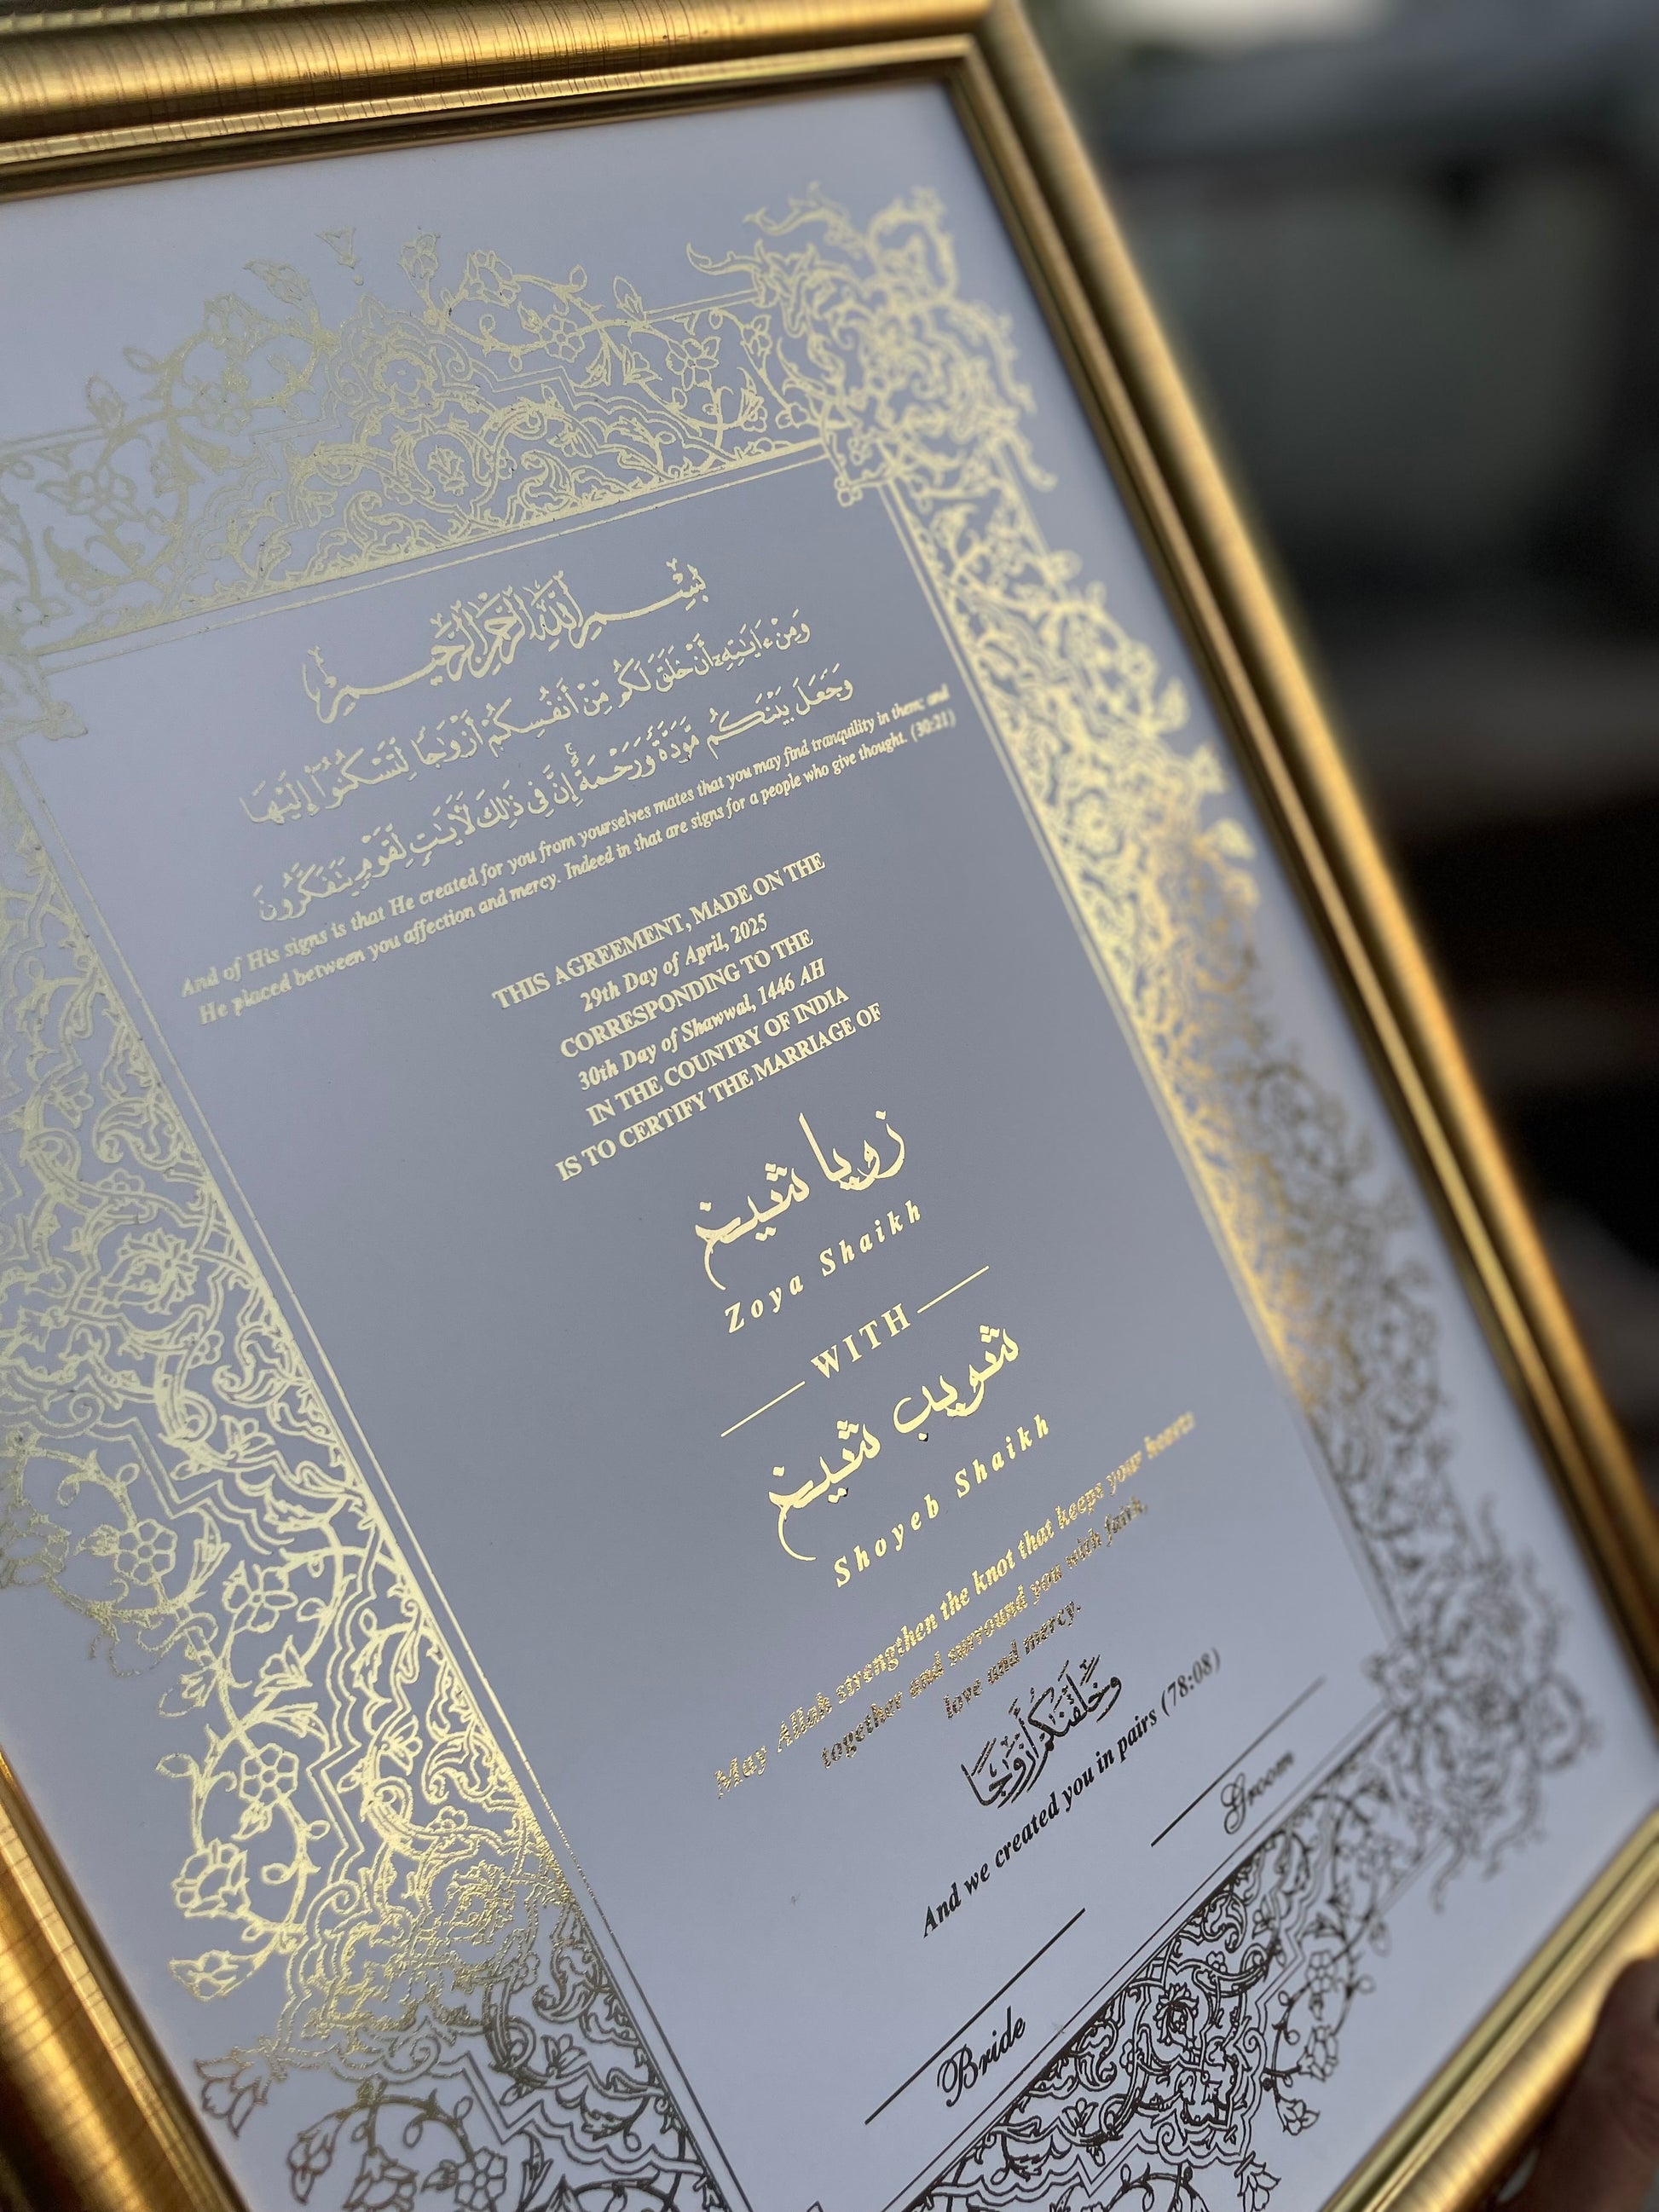 بِسْمِ اللَّهِ الرَّحْمَٰنِ الرَّحِيمِ
وَمِنْ ءَايَٰتِهِۦٓ أَنْ خَلَقَ لَكُم مِّنْ أَنفُسِكُمْ أَزْوَٰجًا لِّتَسْكُنُوٓا۟ إِلَيْهَا
وَجَعَلَ بَيْنَكُم مَّوَدَّةً وَرَحْمَةً ۚ إِنَّ فِى ذَٰلِكَ لَءَايَٰتٍ لِّقَوْمٍ يَتَفَكَّرُونَ
And of His signs is that He created for you from yourselves mates that you may find tranquility in them; and
He placed between you affection and mercy. Indeed in that are signs for a people who give thought. (30:21)
THIS AGREEMENT, MADE ON THE
29th Day of April, 2025
CORRESPONDING TO THE
30th Day of Shawwal, 1446 AH
IN THE COUNTRY OF INDIA
IS TO CERTIFY THE MARRIAGE OF
زويا شيخ
Zoya Shaikh
WITH
شويب شيخ
Shoyeb Shaikh
May Allah strengthen the knot that keeps your hearts
together and surround you with faith,
love and mercy.
وَخَلَقْنَٰكُمْ أَزْوَٰجًا
And we created you in pairs (78:08)
Groom
Bride